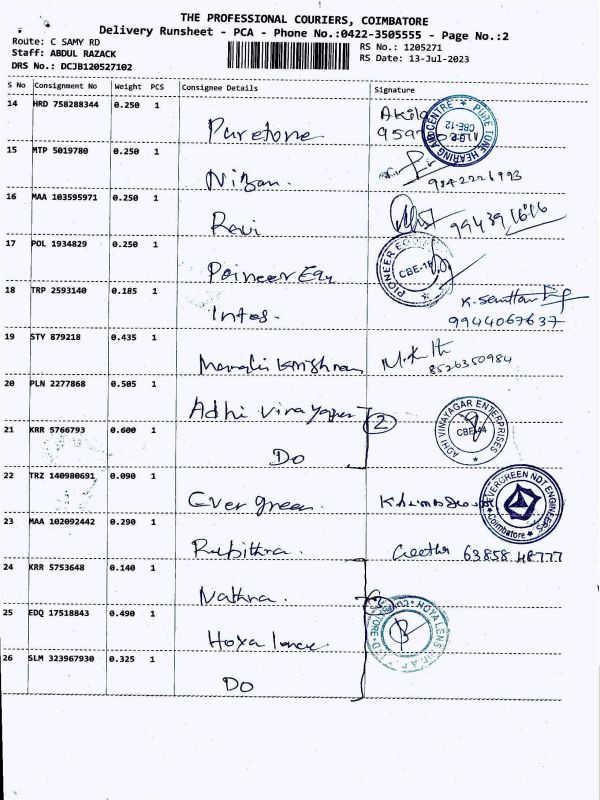 THE PROFESSIONAL COURIERS, COIMBATORE
Delivery Runsheet - PCA - Phone No.:0422-3505555 - Page No.:2
Route: C SAMY RD
Staff: ABDUL RAZACK
DRS No.: DCJB120527102
RS No.: 1205271
RS Date: 13-Jul-2023
S No Consignment No Weight PCS Consignee Details Signature
14 HRD 758288344 0.250 1 Puretone Akila
PURE TONE HEARING AID CENTRE CBE-12
15 MTP 5019780 0.250 1 Nizan. 9842221993
16 MAA 103595971 0.250 1 Ravi
17 POL 1934829 0.250 1 Poineer
PIONEER CBE-18
18 TRP 2593140 0.185 1 Intos.
9944067637
19 STY 879218 0.435 1 8526350984
20 PLN 2277868 0.505 1 Adhi Vinayagar
21 KRR 5766793 0.600 1 Do 2
ADHI VINAYAGAR ENTERPRISES CBE-44
22 TRZ 140980691 0.090 1 Ever green.
EVERGREEN NDT ENGINEERS Coimbatore
23 MAA 102092442 0.290 1 Geetha 63858 48777
24 KRR 5753648 0.140 1 3
25 EDQ 17518843 0.490 1 Hoya
HOYA LENS
26 SLM 323967930 0.325 1 Do